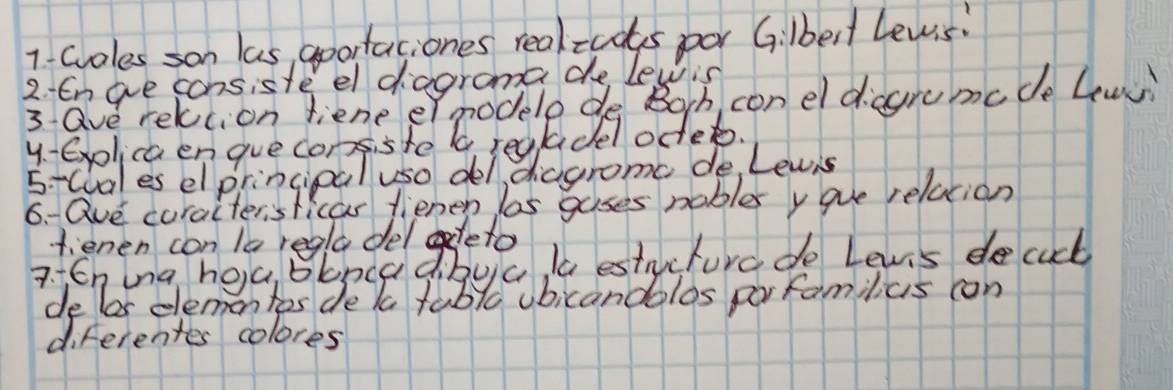 1.-Cuales son las aportaciones realizadas por Gilbert Lewis.
2.-En que consiste el diagrama de Lewis
3.-Qué relacion tiene el modelo de Borh con el diagrama de Lewis
4.-Explica en que consiste la regla del octeto.
5.-Cual es el principal uso del diagrama de Lewis
6.-Qué caracteristicas tienen los gases nobles y que relacion
tienen con la regla del octeto
7.-En una hoja blanca dibuja la estructura de Lewis de cada
de los elementos de la tabla ubicandolos por familias con
diferentes colores